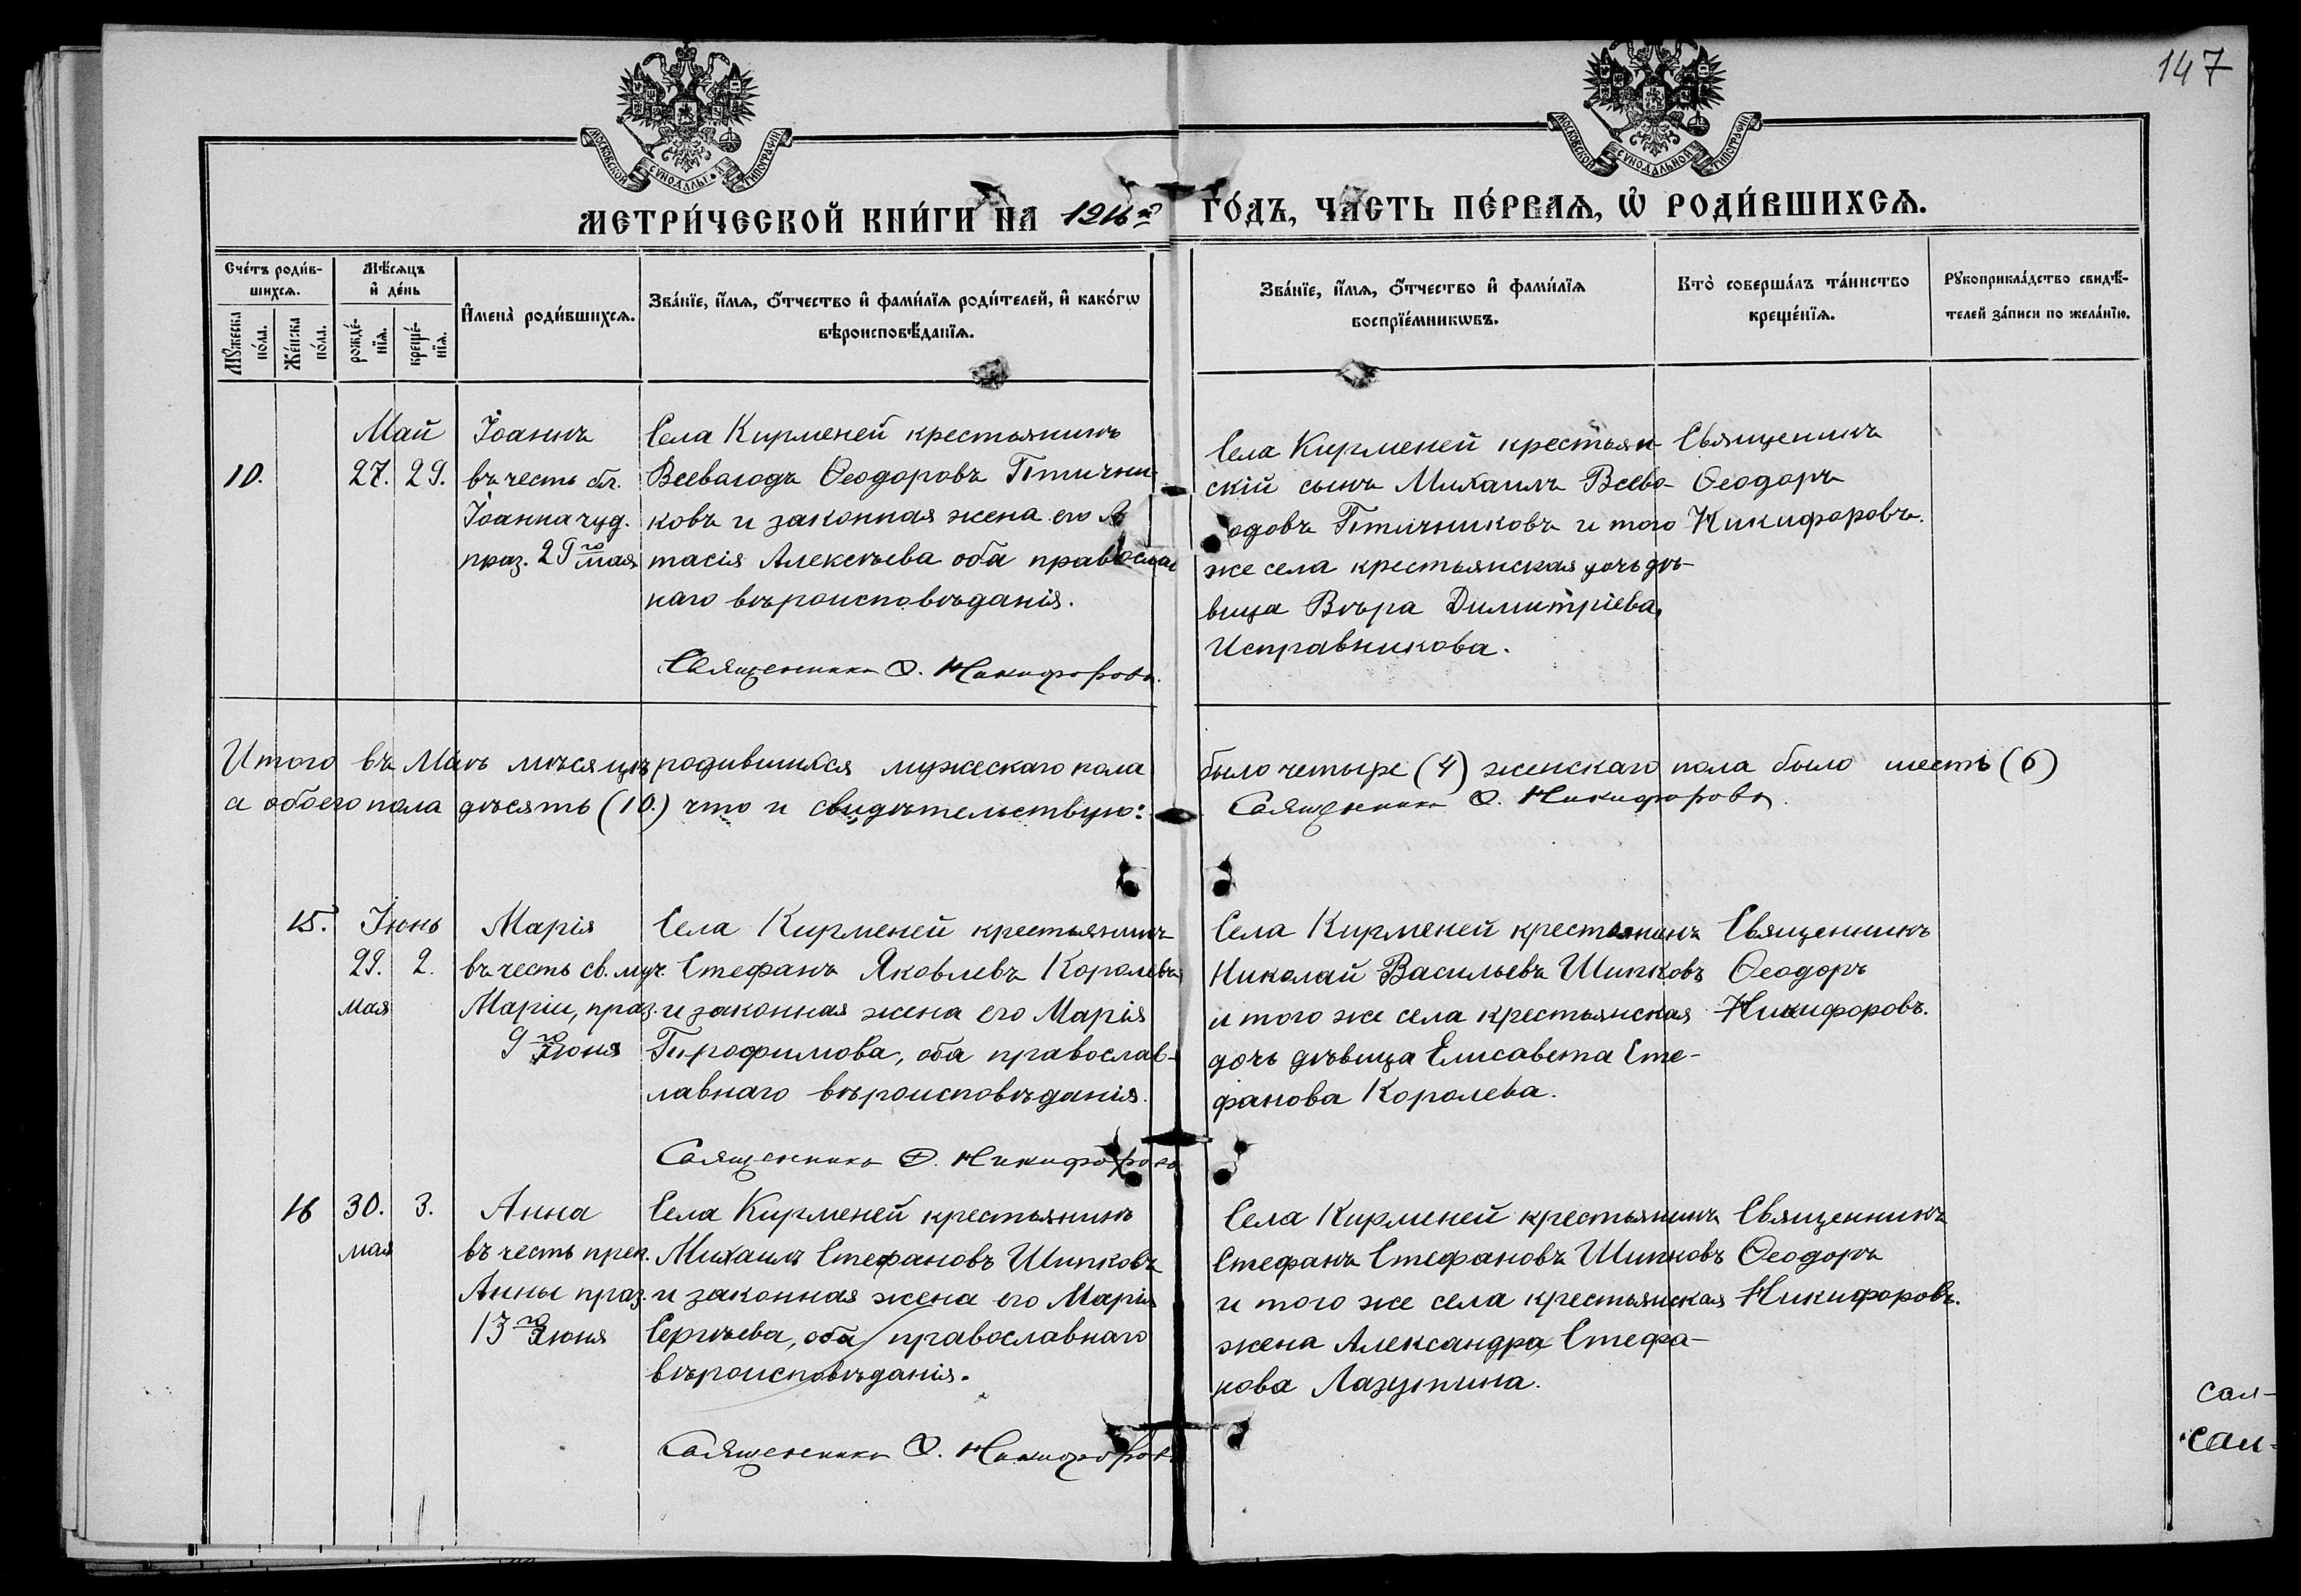 147
МОСКОВСКОЙ СѴНОДАЛЬНОЙ ТИПОГРАФІИ
МОСКОВСКОЙ СѴНОДАЛЬНОЙ ТИПОГРАФІИ
МЕТРИ́ЧЕСКОЙ КНИ́ГИ НА 1916й ГО́ДЪ, ЧА́СТЬ ПЕ́РВАѦ, Ѡ҆ РОДИ́ВШИХСѦ.
Сче́тъ роди́в-
шихсѧ.
Мꙋ́жеска
по́ла.
Же́нска
по́ла.
Мѣ́сѧцъ
и҆ де́нь
рожде́-
нїѧ.
креще́-
нїѧ.
И҆мена̀ роди́вшихсѧ.
Зва́нїе, и҆́мѧ, ѻ҆́тчество и҆ фами́лїѧ роди́телей, и҆ како́гѡ
вѣроисповѣ́данїѧ.
Зва́нїе, и҆́мѧ, ѻ҆́тчество и҆ фами́лїѧ
воспрїе́мникѡвъ.
Кто̀ соверша́лъ та́инство
креще́нїѧ.
Рꙋкоприкла́дство свидѣ́-
телей за́писи по жела́нїю.
10.
Май
27. 29.
Іоаннъ
въ честь бл.
Іоанна чуд.
праз. 29го мая
Села Кирменей крестьянинъ
Всевалодъ Ѳеодоровъ Птични-
ковъ и законная жена его
тасія Алексѣева оба православ
наго вѣроисповѣданія.
Священникъ Ѳ. Никифоровъ.
Села Кирменей крестьян-
скій сынъ Михаилъ Всево-
одовъ Птичниковъ и того
же села крестьянская дочь дѣ-
вица Вѣра Димитріева,
Исправникова.
Священникъ
Ѳеодоръ
Никифоровъ.
Итого въ Маѣ мѣсяцѣ родившихся мужескаго пола было четыре (4) женскаго пола было шесть (6)
а обоего пола дѣсять (10.) что и свидѣтельствую: Священникъ Ѳ. Никифоровъ.
15.
Іюнь
29. 2.
мая
Марія
въ честь св. муч.
Маріи, праз.
9го Іюня
Села Кирменей крестьянинъ
Стефанъ Яковлевъ Королевъ
и законная жена его Марія
Трофимова, оба православ-
лавнаго вѣроисповѣданія.
Священникъ Ѳ. Никифоровъ
Села Кирменей крестьянинъ
Николай Васильевъ Шипковъ
и того же села крестьянская
дочь дѣвица Елисавета Сте-
фанова Королева.
Священникъ
Ѳеодоръ
Никифоровъ.
16
30. 3.
мая
Анна
въ честь преп.
Анны праз.
13го Іюня
Села Кирменей крестьянинъ
Михаилъ Стефановъ Шипковъ
и законная жена его Марія
Сергѣева, оба православнаго
вѣроисповѣданія.
Священникъ Ѳ. Никифоровъ
Села Кирменей крестьянинъ
Стефанъ Стефановъ Шипковъ
и того же села крестьянская
жена Александра Стефа-
нова Лазутина.
Священникъ
Ѳеодоръ
Никифоровъ.